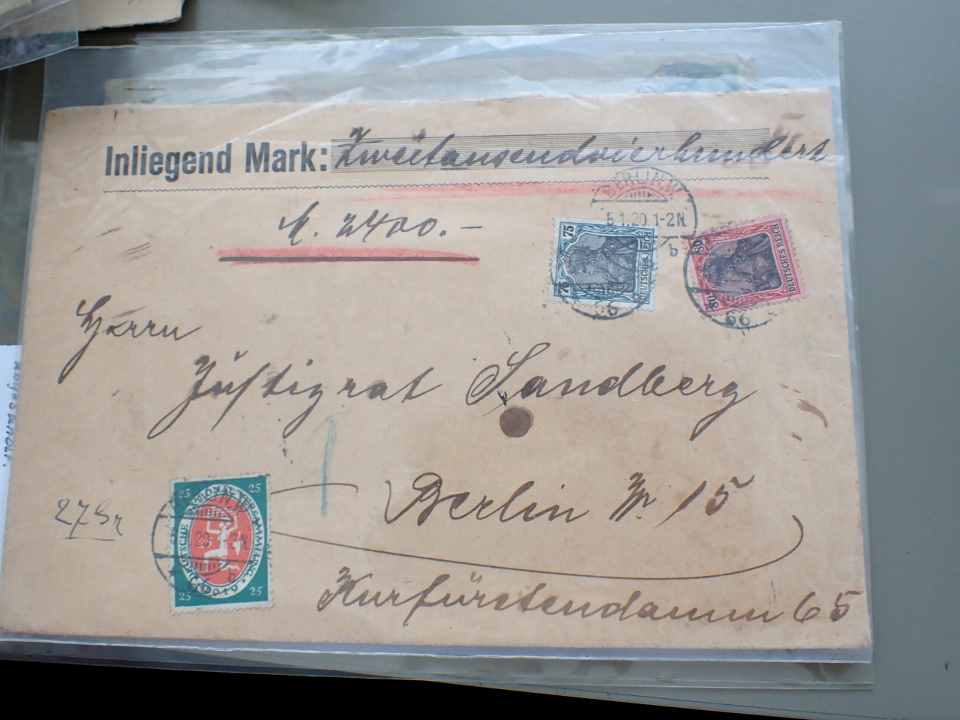 Inliegend Mark: Zweitausendvierhundert
M. 2400.-
BERLIN W
5.1.20.1-2N.
b
66
75 75
DEUTSCHES REICH
66
80
DEUTSCHES REICH
Herrn
Justizrat Sandberg
Berlin W. 15
Kurfürstendamm 65
27 Gr
25 25
DEUTSCHE NATIONALVERSAMMLUNG
1919
25 25